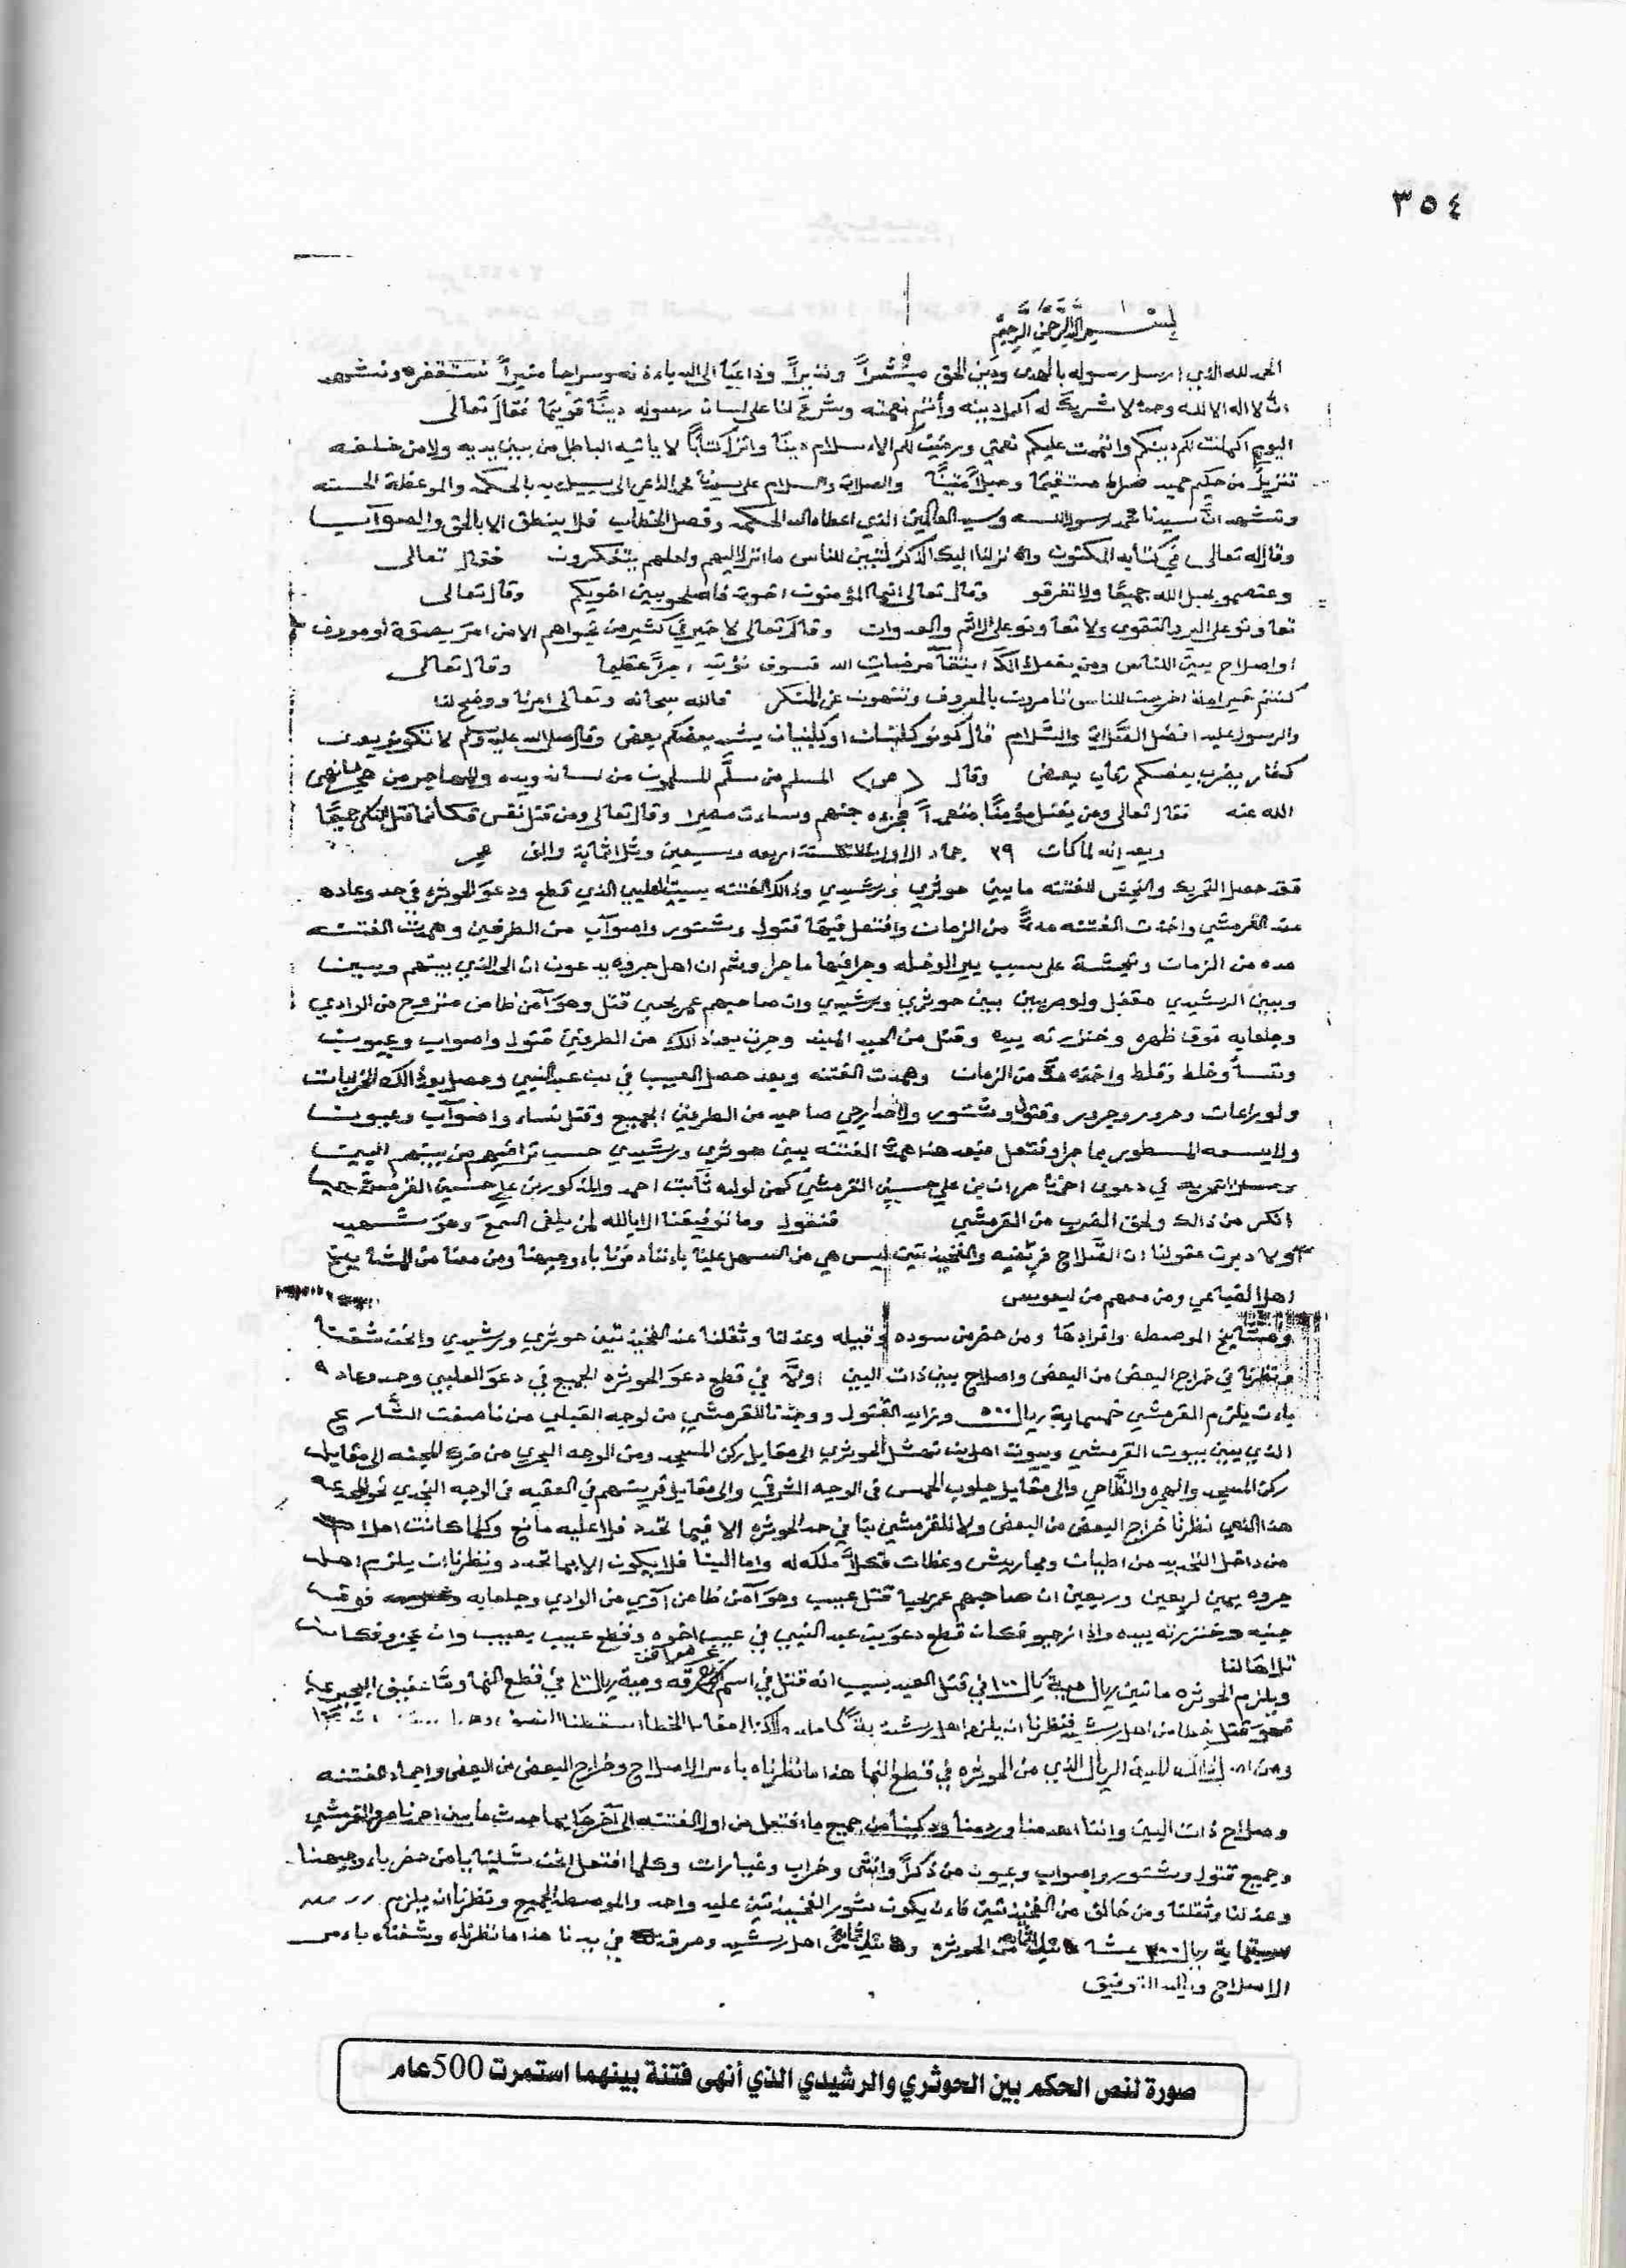 ٣٥٤
بسم الله الرحمن الرحيم
الحمد لله الذي ارسل رسوله بالهدى ودين الحق مبشراً ونذيراً وداعياً الى الله باءذنه وسراجاً منيراً نستغفره ونشهد
ان لا اله الا الله وحده لا شريك له اكمل دينه وأتم نعمته وشرع لنا على لسان رسوله ديناً قويماً فقال تعالى
اليوم اكملت لكم دينكم واتممت عليكم نعمتي ورضيت لكم الاءسلام ديناً وانزل كتاباً لا ياتيه الباطل من بين يديه ولا من خلفه
تنزيل من حكيم حميد صراط مستقيماً وحبلاً متيناً والصلاة والسلام على سيدنا محمد الداعي الى سبيل ربه بالحكمه والموعظة الحسنه
ونشهد انَّ سيدنا محمد رسول الله وسيد العالمين الذي اعطاه الله الحكمه وفصل الخطاب فلا ينطق الا بالحق والصوآب
وقال تعالى في كتابه المكنون وانزلنا اليك الذكر لتبين للناس ما انزل اليهم ولعلهم يتفكرون فقال تعالى
وعتصمو بحبل الله جميعاً ولا تفرقو وقال تعالى انما المؤمنون اخوة فاصلحو بين اخويكم وقال تعالى
تعاونو على البر والتقوى ولا تعاونو على الاثم والعدوان وقال تعالى لا خير في كثير من نجواهم الا من امر بصدقة أو معروف
او اصلاح بين الناس ومن يفعل ذالك ابتغاً مرضات الله فسوف نؤتيه اجراً عظيما وقال تعالى
كنتم خير امة اخرجت للناس تامرون بالمعروف وتنهون عن المنكر فالله سبحانه وتعالى امرنا ووضح لنا
والرسول عليه افضل الصَّلاة والسَّلام قال كونو كالبنان او كالبنيان يشد بعضكم بعض وقال صلى الله عليه وسلم لا تكونو بعدي
كفار يضرب بعضكم رقاب بعض وقال (ص) المسلم من سلَّم المسلمون من لسانه ويده والمهاجر من هجر ما نهى
الله عنه فقال تعالى ومن يقتل مؤمناً متعمداً فجزوه جهنم وساءت مصيرا وقال تعالى ومن قتل نفس فكأنما قتل الناس جميعاً
وبعد انه لما كان ٢٩ جماد الاول ١٣٧٤ سنة اربعه وسبعين وثلاثماية والف هجر
فقد حصل التحريك والنجش للفتنه ما بين حوثري ورشيدي وذالك الفتنه بسبب العليبي الذي قطع ودعوَ الحوثره في حد وعاده
عند القرمشي واخذت الفتنه مدةً من الزمان وافتعل فيها قتول وشتور واصوآب من الطرفين وهمدت الفتنه
مده من الزمان ونجشة على سبب بير الوخله وجرا فيها ما جرا وثم ان اهل جروه يدعون ان الى الذي بينهم وبين
وبين الرشيدي مقفل ولو حربين بين حوثري ورشيدي وان صاحبهم عمر يحيى قتل وهوَ آمن ضامن منزوح من الوادي
وجلعابه فوق ظهره وخنزرته بيده وقتل من العيب المهيف وجرت بعد ذالك من الطرفين قتول واصواب وعيوب
ونقاً وغلط وقلط واخذه مدَّه من الزمان وهمدت الفتنه وبعد حصل العيب في بن عبدالنبي وحصل بعد ذالك الحربيات
وقتول وشتور ولاحد ابرحي صاحبه من الطرفين الجميع وقتل نساء واصوآب وعيوب
ولا يسعه المسطور بما جرا وفتعل فبعد هذا همدت الفتنه بين حوثري ورشيدي حسب تراضيهم من بينهم البين
وحصل التحريك في دعوى اخونا مران بن علي حسين القرمشي كمن لوليه ثابت احمد والمذكورين علي حسين القرمشي
انكر من ذالك ولحق الضرب من القرمشي فنقول وما توفيقنا الا بالله لمن يلقى السمع وهو شهيد
ولا دبرت عقولنا ان الصَّلاح فريضه والفخيذتين ليس هي من السهل علينا باءننا دفرنا باءوجيهنا ومن معنا من المشايخ
اهل الضياعي ومن معهم من ليعوس
ومشايخ الموصطه وافرادها ومن حضر من سوده وقبيله وعدلنا وثقلنا عند الفخيذتين حوثري ورشيدي واخذت شفقت
ونظرنا في خراج البعض من البعض واصلاح بين ذات البين اولاً في قطع دعوَ الحوثره الجميع في دعوَ العليبي وحد وعاده
باءن يلتزم القرمشي خمسماية ريال ٥٠٠ وتزايد القتول ووجدنا للقرمشي من لوجه القبلي من ناصفت الشَّارع
الذي بين بيوت القرمشي وبيوت اهل بن نهشل الحوثري الى مقابل ركن المسجد ومن الوجه البحري من فرك المجنه الى مقابل
ركن المسجد والهجره والضَّاحي والى مقابل جلوب الحمس في الوجه الشرقي والى مقابل قريتهم في العقيه في الوجه النجدي
هذا الذي نظرنا خراج البعض من البعض ولا للقرمشي بتا في حد الحوثره الا فيما تحدد فلا عليه مانع وكلما كانت املاك
من داخل التحديد من اطيان ومجاريش وعطات فكلاً ملكه له واما البنا فلا يكون الا بما تحدد ونظرنا ان يلزم اهل
جروه يمين اربعين وربعين ان صاحبهم عمر يحيا قتل عيب وهوَ آمن ضامن آوي من الوادي وجلعابه فوق
جنبه وخنزرته بيده واذا نرجو فكان قطع دعوَ بن عبد النبي في عيب اخوه وقطع عيب بعيب وان عجزو فكان
تلاهالنا
ويلزم الحوثره ماتين ريال مية ريال ١٠٠ في قتل العبد بسبب انه قتل في اسم الحرقه ومية ريال ١٠٠ في قطع النما
فهوَ قتل خطا من اهل رشيد فنظرنا ان يلزم اهل رشيد
لمية الريال الذي من الحوثره في قطع النما هذا ما نظرناه باءمر الاصلاح وخراج البعض من البعض واجماد الفتنه
وصلاح ذات البين واننا اهدمنا وردمنا ودكينا من جميع ما افتعل من اول الفتنه الى آخرها بما حدث ما بين احمد ناصر والقرمشي
وجميع قتول وشتور واصواب وعيوب من ذكراً وانثى وخراب وغبارات وكلما افتعل اخذت شلينا يا من حضر باءوجيهنا
وعدلنا وثقلنا ومن خالف من الفخيذتين فاءن يكون شور الفخيذتين عليه واحد والموصطه الجميع ونظرنا ان يلزم
ستماية ريال ٦٠٠ عشا من الحوثره اهل رشيد وصرفت في يدنا هذا ما نظرناه وشفناه باءمر
الاصلاح وبالله التوفيق
صورة لنص الحكم بين الحوثري والرشيدي الذي أنهى فتنة بينهما استمرت 500 عام